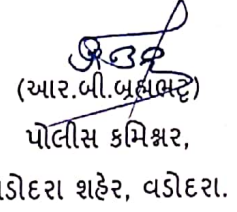 (આર.બી.બ્રહ્મભટ્ટ)
પોલીસ કમિશ્નર,
ડોદરા શહેર, વડોદરા.